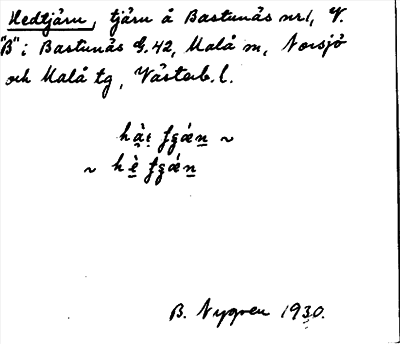 Hedtjärn, tjärn å Bastunäs nr 1, V.
"B" i Bastunäs G.42, Malå sn, Norsjö
och Malå tg, Västerb. l.
~
~
B. Nygren 1930.